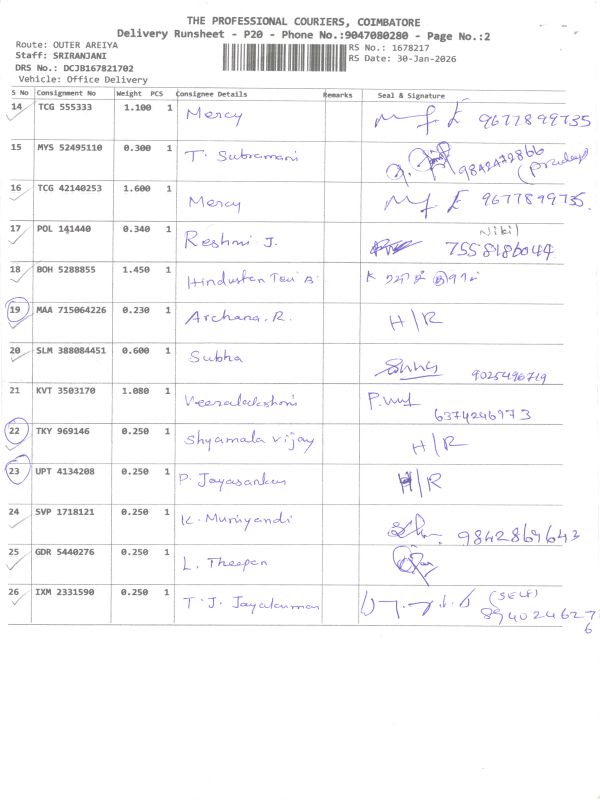 THE PROFESSIONAL COURIERS, COIMBATORE
Delivery Runsheet - P20 - Phone No.:9047080280 - Page No.:2
Route: OUTER AREIYA
Staff: SRIRANJANI
DRS No.: DCJB167821702
Vehicle: Office Delivery
RS No.: 1678217
RS Date: 30-Jan-2026
S No Consignment No Weight PCS Consignee Details Remarks Seal & Signature
14 TCG 555333 1.100 1 Mercy 9677899735
15 MYS 52495110 0.300 1 T. Subramani 9842472866
(pradeep)
16 TCG 42140253 1.600 1 Mercy 9677899735.
17 POL 141440 0.340 1 Reshmi J. Nikil
7558186044
18 BOH 5288855 1.450 1 Hindustan
19 MAA 715064226 0.230 1 Archana. R. H/R
20 SLM 388084451 0.600 1 Subha
9025496719
21 KVT 3503170 1.080 1 Veeralakshmi
6374246973
22 TKY 969146 0.250 1 Shyamala Vijay H/R
23 UPT 4134208 0.250 1 P. Jayasankar H/R
24 SVP 1718121 0.250 1 K. Muniyandi 9842869643
25 GDR 5440276 0.250 1 L. Theepan
26 IXM 2331590 0.250 1 T. J. Jayakumar (SELF)
8940246276